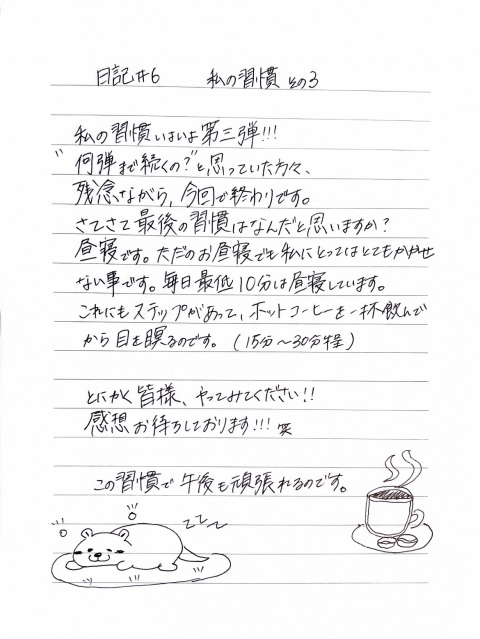 日記#6 私の習慣 その3
私の習慣いよいよ第三弾!!!
"何弾まで続くの?"と思っていた方々、
残念ながら、今回で終わりです。
さてさて最後の習慣はなんだと思いますか?
昼寝です。ただのお昼寝でも私にとってはとてもかかせ
ない事です。毎日最低10分は昼寝しています。
これにもステップがあって、ホットコーヒーを一杯飲んで
から目を瞑るのです。(15分〜30分程)
とにかく皆様、やってみてください!!
感想お待ちしております!!! 笑
この習慣で午後も頑張れるのです。
zzz